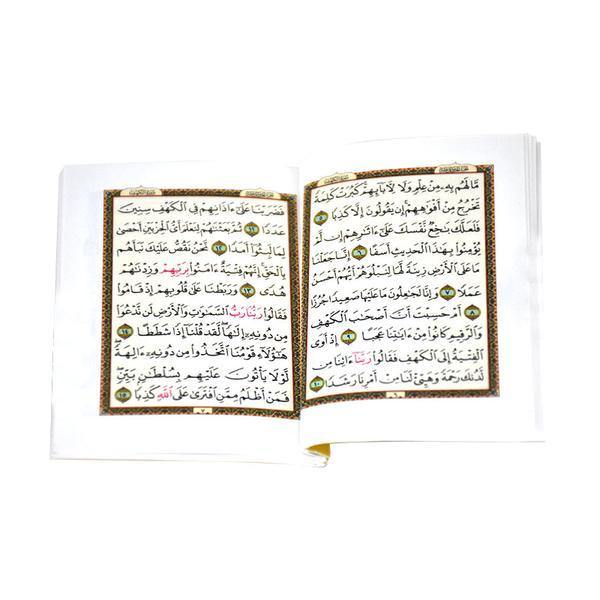 مَّا لَهُم بِهِۦ مِنْ عِلْمٍ وَلَا لِأٓبَآئِهِمْ كَبُرَتْ كَلِمَةً
تَخْرُجُ مِنْ أَفْوَٰهِهِمْ إِن يَقُولُونَ إِلَّا كَذِبًا ٥
فَلَعَلَّكَ بَٰخِعٌ نَّفْسَكَ عَلَىٰٓ ءَاثَٰرِهِمْ إِن لَّمْ
يُؤْمِنُوا۟ بِهَٰذَا ٱلْحَدِيثِ أَسَفًا ٦ إِنَّا جَعَلْنَا
مَا عَلَى ٱلْأَرْضِ زِينَةً لَّهَا لِنَبْلُوَهُمْ أَيُّهُمْ أَحْسَنُ
عَمَلًا ٧ وَإِنَّا لَجَٰعِلُونَ مَا عَلَيْهَا صَعِيدًا جُرُزًا
٨ أَمْ حَسِبْتَ أَنَّ أَصْحَٰبَ ٱلْكَهْفِ
وَٱلرَّقِيمِ كَانُوا۟ مِنْ ءَايَٰتِنَا عَجَبًا ٩ إِذْ أَوَى
ٱلْفِتْيَةُ إِلَى ٱلْكَهْفِ فَقَالُوا۟ رَبَّنَآ ءَاتِنَا مِن
لَّدُنكَ رَحْمَةً وَهَيِّئْ لَنَا مِنْ أَمْرِنَا رَشَدًا ١٠
٦
سورة الكهف
فَضَرَبْنَا عَلَىٰٓ ءَاذَانِهِمْ فِى ٱلْكَهْفِ سِنِينَ
عَدَدًا ١١ ثُمَّ بَعَثْنَٰهُمْ لِنَعْلَمَ أَىُّ ٱلْحِزْبَيْنِ أَحْصَىٰ
لِمَا لَبِثُوٓا۟ أَمَدًا ١٢ نَّحْنُ نَقُصُّ عَلَيْكَ نَبَأَهُم
بِٱلْحَقِّ إِنَّهُمْ فِتْيَةٌ ءَامَنُوا۟ بِرَبِّهِمْ وَزِدْنَٰهُمْ
هُدًى ١٣ وَرَبَطْنَا عَلَىٰ قُلُوبِهِمْ إِذْ قَامُوا۟
فَقَالُوا۟ رَبُّنَا رَبُّ ٱلسَّمَٰوَٰتِ وَٱلْأَرْضِ لَن نَّدْعُوَا۟
مِن دُونِهِۦٓ إِلَٰهًا لَّقَدْ قُلْنَآ إِذًا شَطَطًا ١٤
هَٰٓؤُلَآءِ قَوْمُنَا ٱتَّخَذُوا۟ مِن دُونِهِۦٓ ءَالِهَةً
لَّوْلَا يَأْتُونَ عَلَيْهِم بِسُلْطَٰنٍۭ بَيِّنٍ
فَمَنْ أَظْلَمُ مِمَّنِ ٱفْتَرَىٰ عَلَى ٱللَّهِ كَذِبًا ١٥
٧